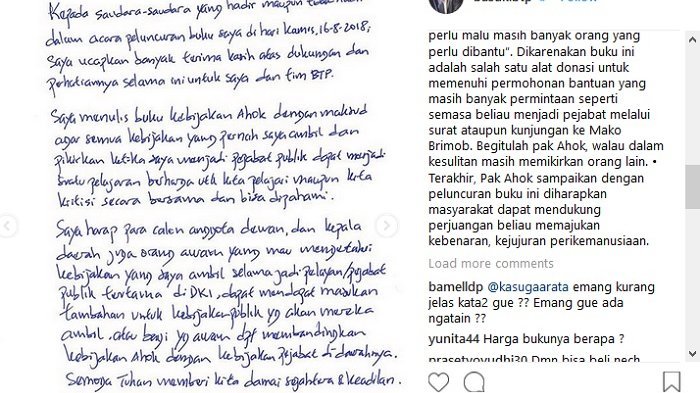 Kepada saudara-saudara yang hadir maupun
dalam acara peluncuran buku saya di hari Kamis, 16-8-2018,
Saya ucapkan banyak terima kasih atas dukungan dan
perhatiannya selama ini untuk saya dan tim BTP.
Saya menulis buku kebijakan Ahok dengan maksud
agar semua kebijakan yang pernah saya ambil dan
pikirkan ketika saya menjadi pejabat publik dapat menjadi
suatu pelajaran berharga utk kita pelajari maupun kita
kritisi secara bersama dan bisa dipahami.
Saya harap para calon anggota dewan, dan kepala
daerah juga orang awam yang mau mengetahui
kebijakan yang saya ambil selama jadi pelayan/pejabat
publik terutama di DKI, dapat mendapat masukan
tambahan untuk kebijakan publik yg akan mereka
ambil. atau bagi yg awam dpt membandingkan
kebijakan Ahok dengan kebijakan pejabat di daerahnya.
Semoga Tuhan memberi kita damai sejahtera & keadilan.
perlu malu masih banyak orang yang
perlu dibantu". Dikarenakan buku ini
adalah salah satu alat donasi untuk
memenuhi permohonan bantuan yang
masih banyak permintaan seperti
semasa beliau menjadi pejabat melalui
surat ataupun kunjungan ke Mako
Brimob. Begitulah pak Ahok, walau dalam
kesulitan masih memikirkan orang lain. •
Terakhir, Pak Ahok sampaikan dengan
peluncuran buku ini diharapkan
masyarakat dapat mendukung
perjuangan beliau memajukan
kebenaran, kejujuran perikemanusiaan.
Load more comments
bamelldp @kasugaarata emang kurang
jelas kata2 gue ?? Emang gue ada
ngatain ??
yunita44 Harga bukunya berapa ?
prasetyoyudhi30 Dmn bisa beli nech